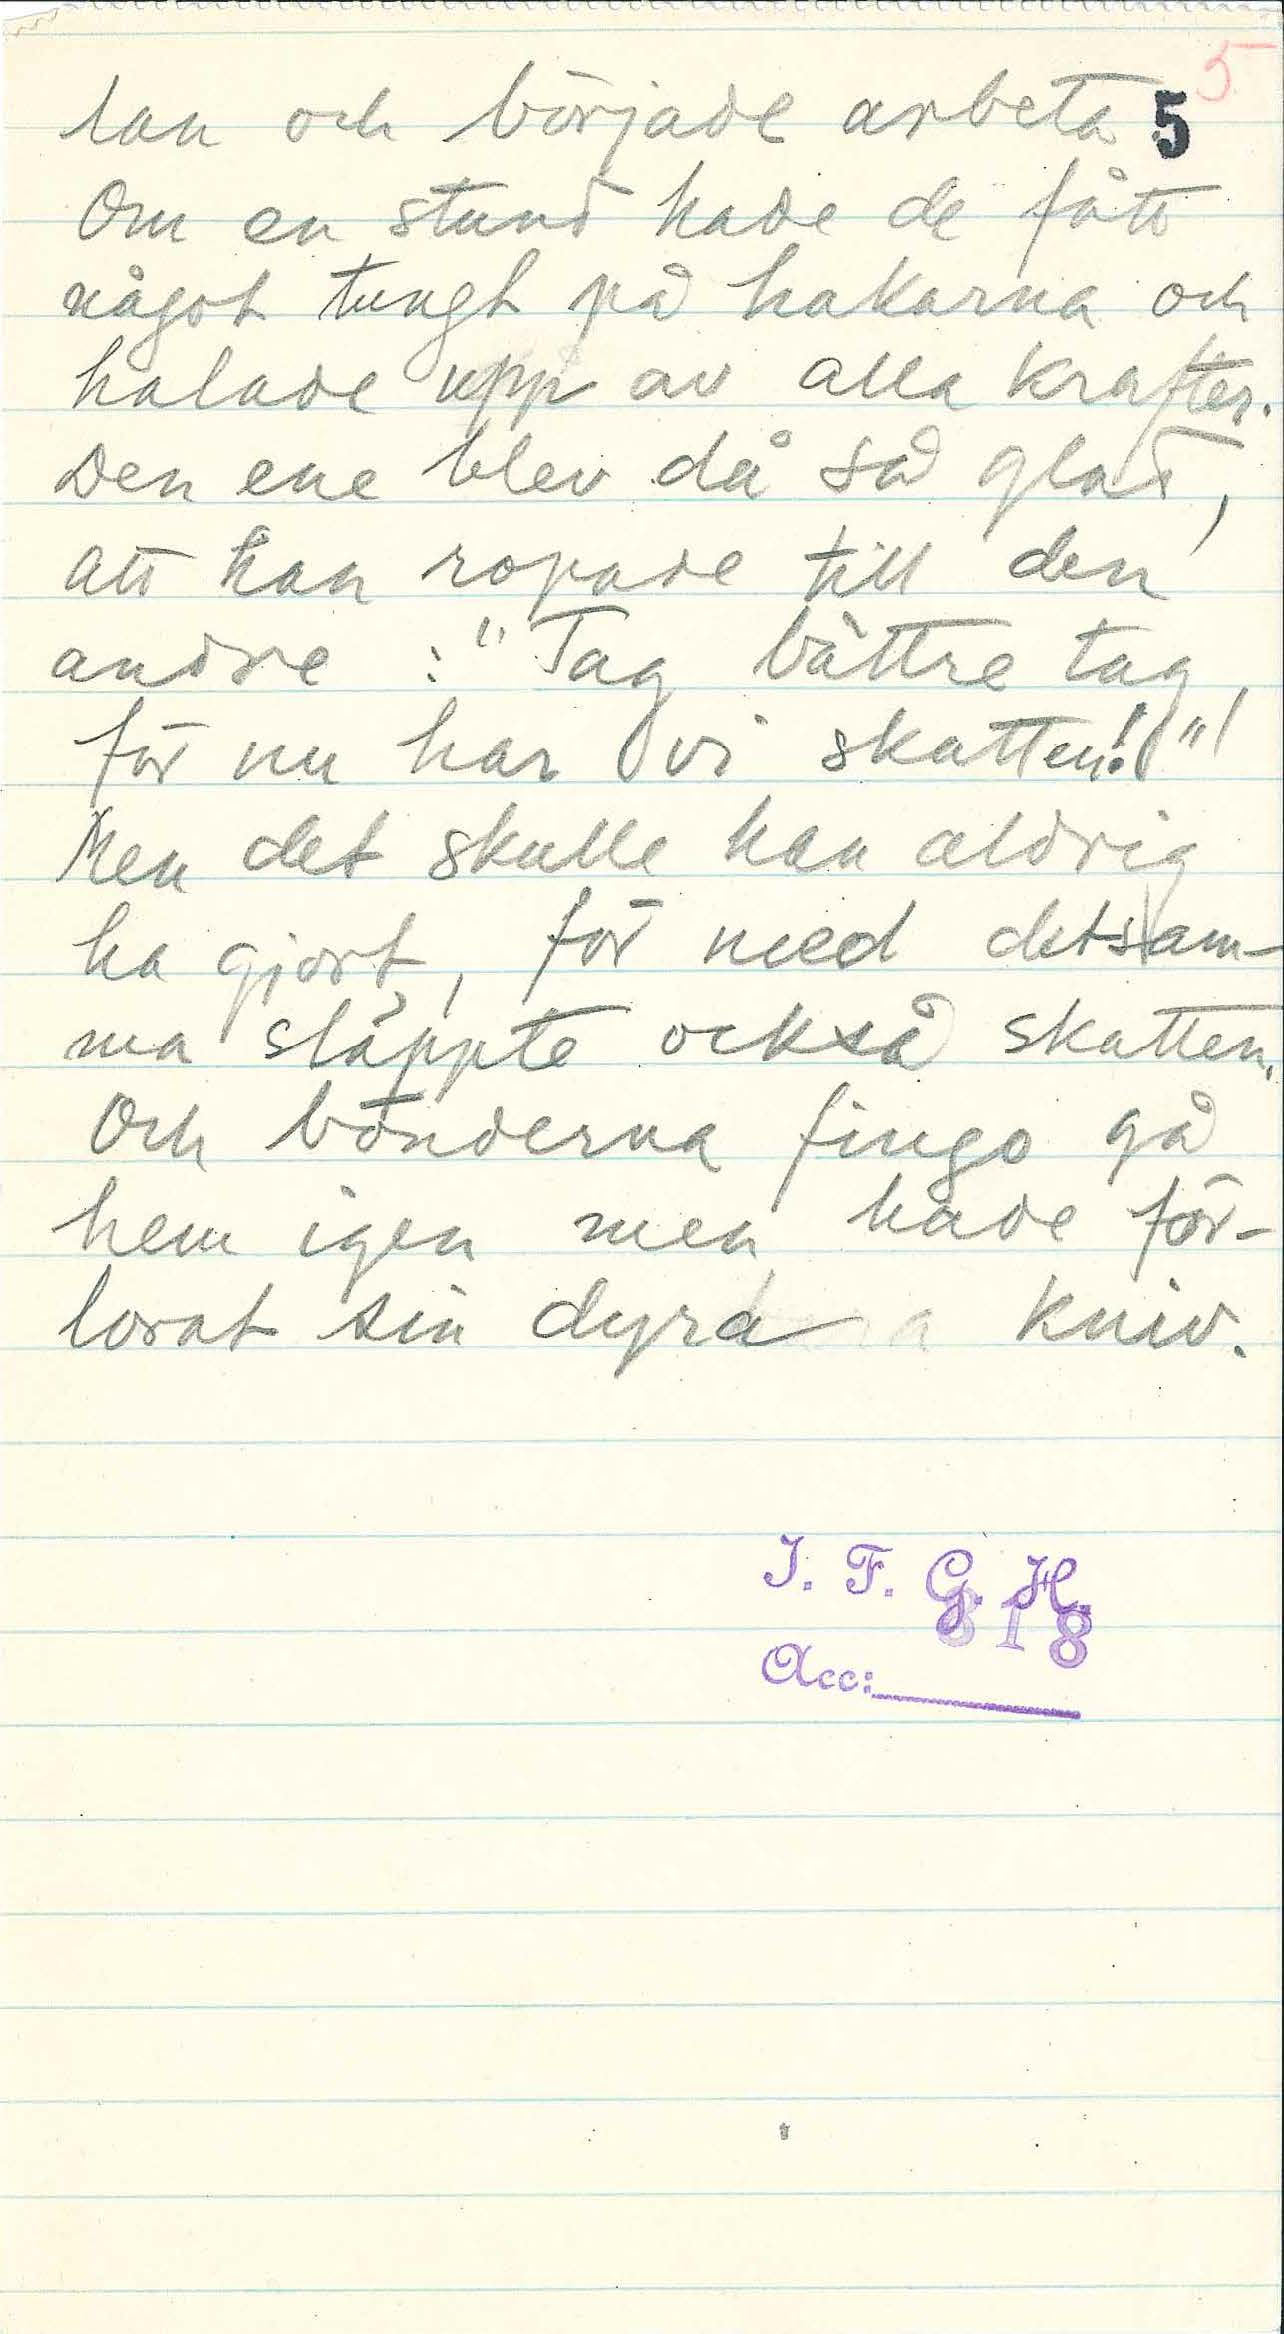 5
lan och började arbeta 5
Om en stund hade de fått
något tungt på hakarna och
halade upp av alla krafter.
Den ene blev då så glad,
att han ropade till den
andre : "Tag bättre tag,
för nu har vi skatten!"
Men det skulle han aldrig
ha gjort, för med detsam-
ma släppte också skatten.
Och bönderna fingo gå
hem igen men hade för-
lorat sin dyra kniv.
I. F. G. H.
818
Acc: